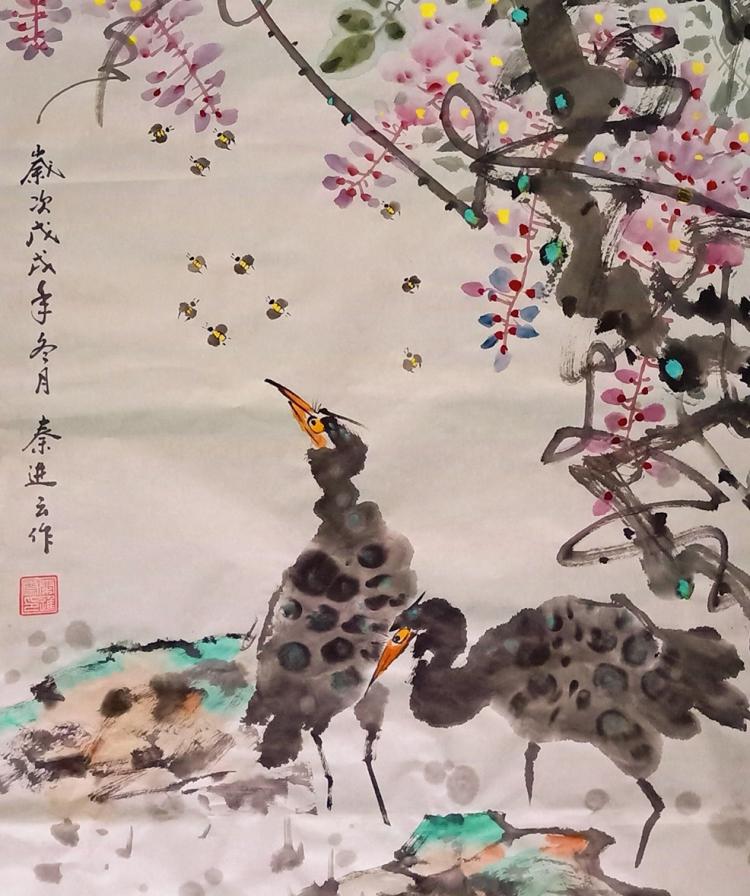 歲次戊戌年冬月 秦進云作